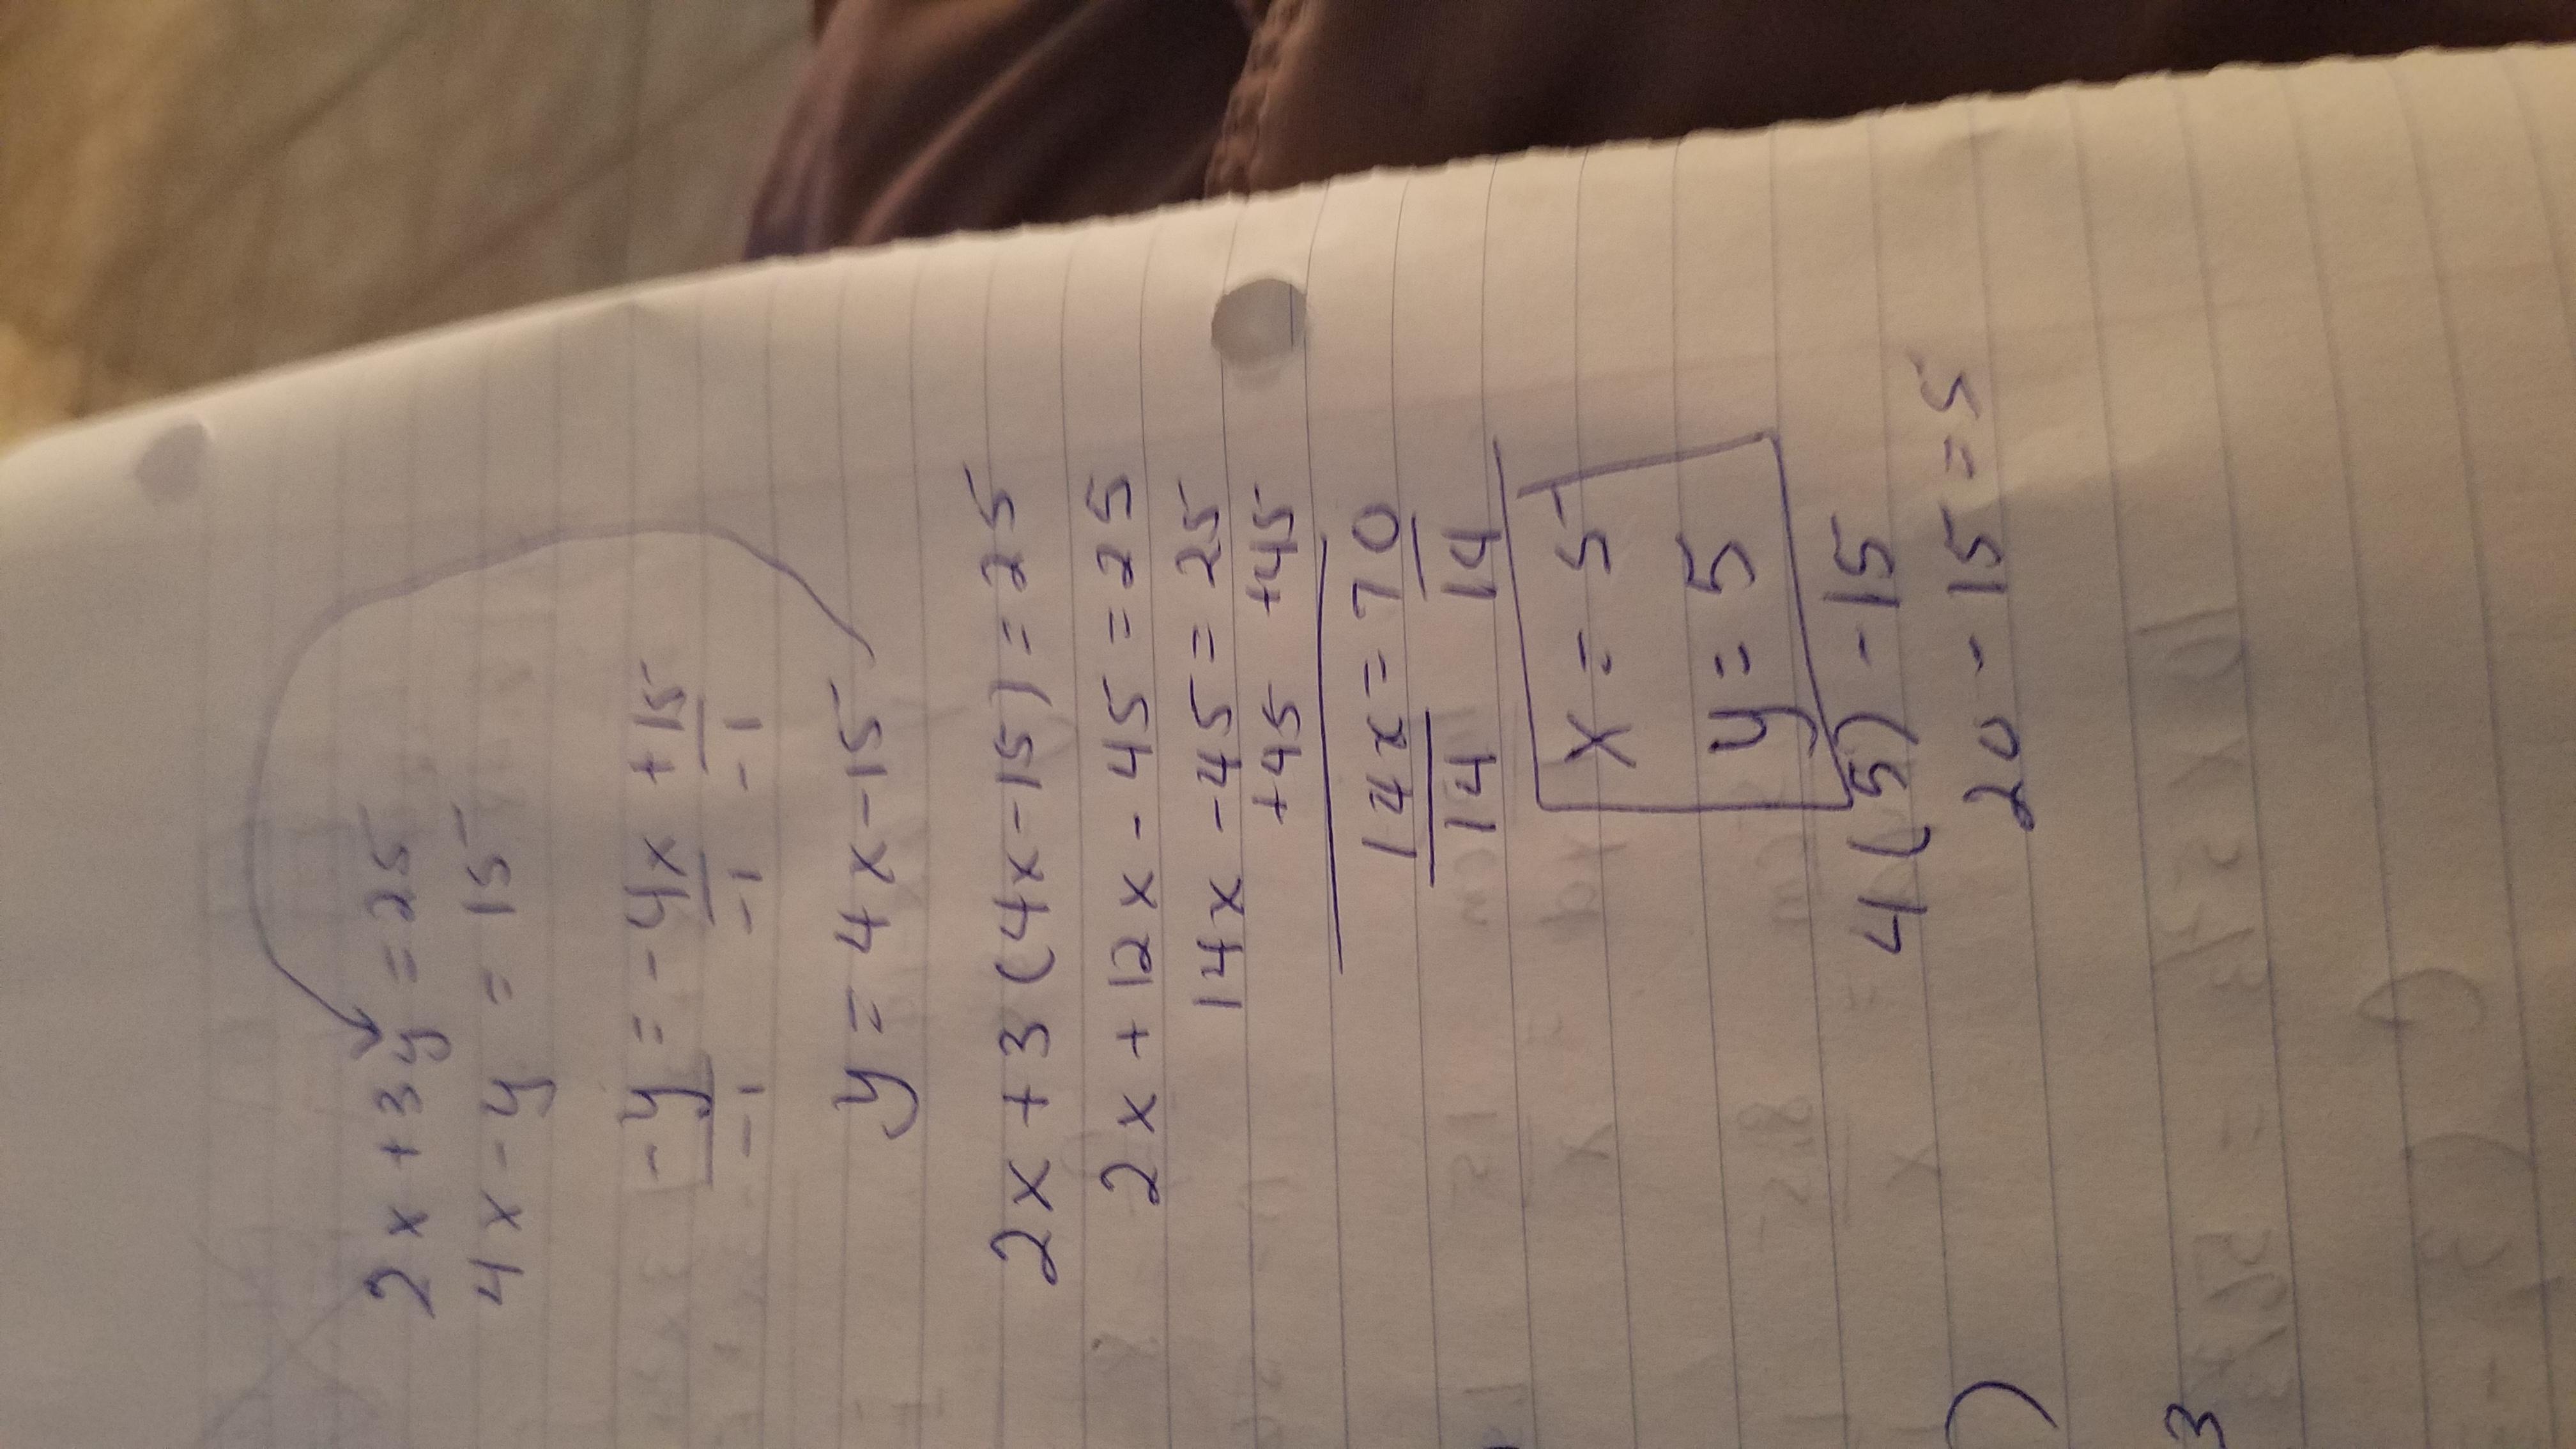 2x + 3y = 25
4x - y = 15
-y = -4x + 15
-1 -1 -1
y = 4x - 15
2x + 3(4x - 15) = 25
2x + 12x - 45 = 25
14x - 45 = 25
+45 +45
14x = 70
14 14
x = 5
y = 5
4(5) - 15
20 - 15 = 5
)
3